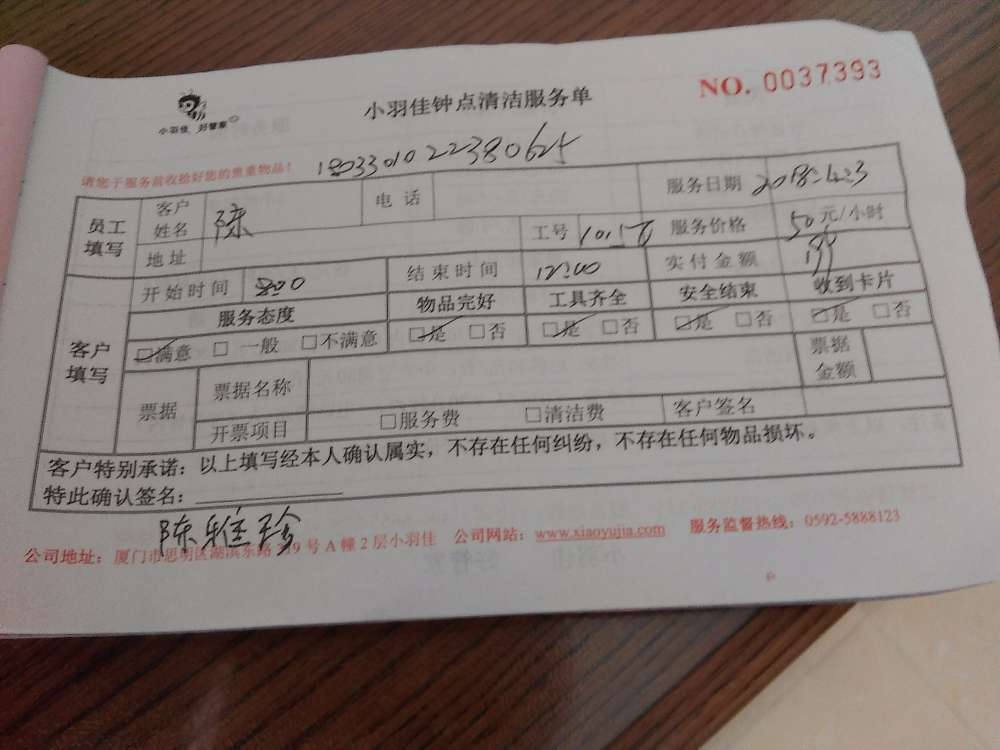 小羽佳 好管家
小羽佳钟点清洁服务单
NO. 0037393
请您于服务前收拾好您的贵重物品！
1803301022380625
员工填写 客户姓名 陈 电话 服务日期 2018.4.23
地址 工号 服务价格 50元/小时
客户填写 开始时间 结束时间 12:00 实付金额
服务态度 物品完好 工具齐全 安全结束 收到卡片
□满意 □一般 □不满意 □是 □否 □是 □否 □是 □否 □是 □否
票据 票据名称 票据金额
开票项目 □服务费 □清洁费 客户签名
客户特别承诺：以上填写经本人确认属实，不存在任何纠纷，不存在任何物品损坏。
特此确认签名：
陈雅珍
公司地址：厦门市思明区湖滨东路 9号A幢2层小羽佳 公司网站：www.xiaoyujia.com 服务监督热线：0592-5888123